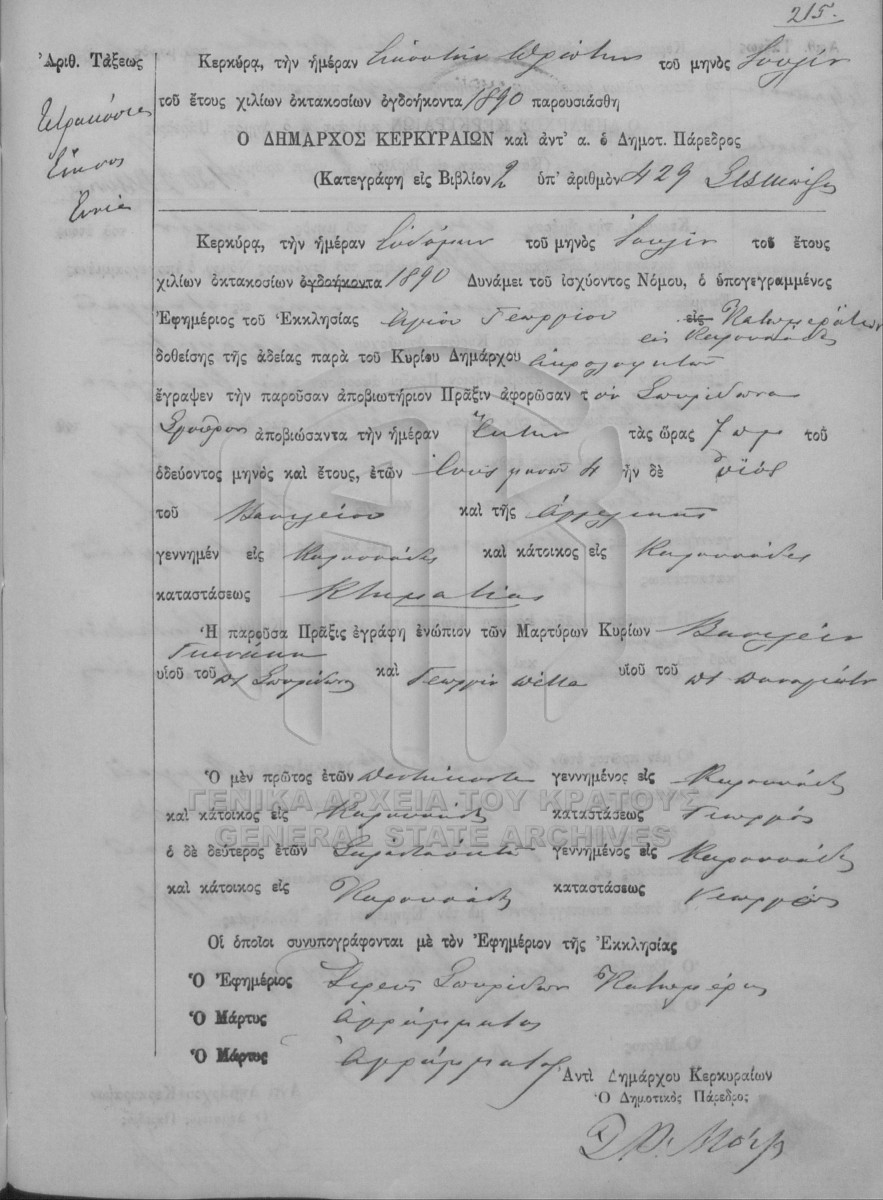 215.
Ἀριθ. Τάξεως
Τετρακόσια
Εἴκοσι
Ἐννέα
Κερκύρα, τὴν ἡμέραν Εἰκοστὴν πρώτην τοῦ μηνὸς Ἰουλίου
τοῦ ἔτους χιλίων ὀκτακοσίων ὀγδοήκοντα 1890 παρουσιάσθη
Ο ΔΗΜΑΡΧΟΣ ΚΕΡΚΥΡΑΙΩΝ καὶ ἀντ' α. ὁ Δημοτ. Πάρεδρος
(Κατεγράφη εἰς Βιβλίον 2 ὑπ' ἀριθμὸν 429
Κερκύρα, τὴν ἡμέραν Ἑβδόμην τοῦ μηνὸς Ἰουλίου τοῦ ἔτους
χιλίων ὀκτακοσίων ὀγδοήκοντα 1890 Δυνάμει τοῦ ἰσχύοντος Νόμου, ὁ ὑπογεγραμμένος
Ἐφημέριος τοῦ Ἐκκλησίας Ἁγίου Γεωργίου εἰς
εἰς Καρουσάδες
δοθείσης τῆς ἀδείας παρὰ τοῦ Κυρίου Δημάρχου
ἔγραψεν τὴν παροῦσαν ἀποβιωτήριον Πρᾶξιν ἀφορῶσαν τὸν Σπυρίδωνα
ἀποβιώσαντα τὴν ἡμέραν Ἕκτην τὰς ὥρας 7 πμ τοῦ
ὁδεύοντος μηνὸς καὶ ἔτους, ἐτῶν 4 ἦν δὲ υἱὸς
τοῦ Βασιλείου καὶ τῆς Ἀγγελικῆς
γεννημέν εἰς Καρουσάδες καὶ κάτοικος εἰς Καρουσάδες
καταστάσεως Κτηματίας
Ἡ παροῦσα Πρᾶξις ἐγράφη ἐνώπιον τῶν Μαρτύρων Κυρίων Βασιλείου
υἱοῦ τοῦ πτ Σπυρίδωνος καὶ Γεωργίου υἱοῦ τοῦ πτ Παναγιώτου
Ὁ μὲν πρῶτος ἐτῶν πεντήκοντα γεννημένος εἰς Καρουσάδες
καὶ κάτοικος εἰς Καρουσάδες καταστάσεως Γεωργός
ὁ δὲ δεύτερος ἐτῶν Σαράντα γεννημένος εἰς Καρουσάδες
καὶ κάτοικος εἰς Καρουσάδες καταστάσεως Γεωργός
Οἱ ὁποῖοι συνυπογράφονται μὲ τὸν Ἐφημέριον τῆς Ἐκκλησίας
Ὁ Ἐφημέριος Ἱερεὺς Σπυρίδων
Ὁ Μάρτυς Ἀγράμματος
Ὁ Μάρτυς Ἀγράμματος
Ἀντὶ Δημάρχου Κερκυραίων
Ὁ Δημοτικὸς Πάρεδρος
ΓΕΝΙΚΑ ΑΡΧΕΙΑ ΤΟΥ ΚΡΑΤΟΥΣ
GENERAL STATE ARCHIVES